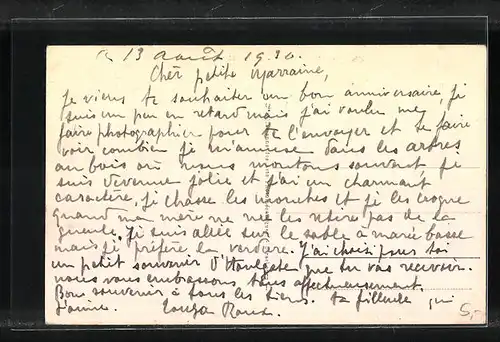 le 13 août 1930.
Cher petite Marraine,
je viens te souhaiter un bon anniversaire, je
suis un peu en retard mais j'ai voulu me
faire photographier pour te l'envoyer et te faire
voir combien je m'amuse dans les arbres
au bois où nous montons souvent, je
suis devenue jolie et j'ai un charmant
caractère, je chasse les mouches et je les croque
quand ma mère ne me les retire pas de la
gueule. Je suis allée sur le sable à marée basse
mais je préfère la verdure. J'ai choisi pour toi
un petit souvenir d'Houlgate que tu vas recevoir.
nous vous embrassons tous affectueusement.
Bon souvenir à tous les tiens. ta filleule qui
t'aime. Roux.
5,-